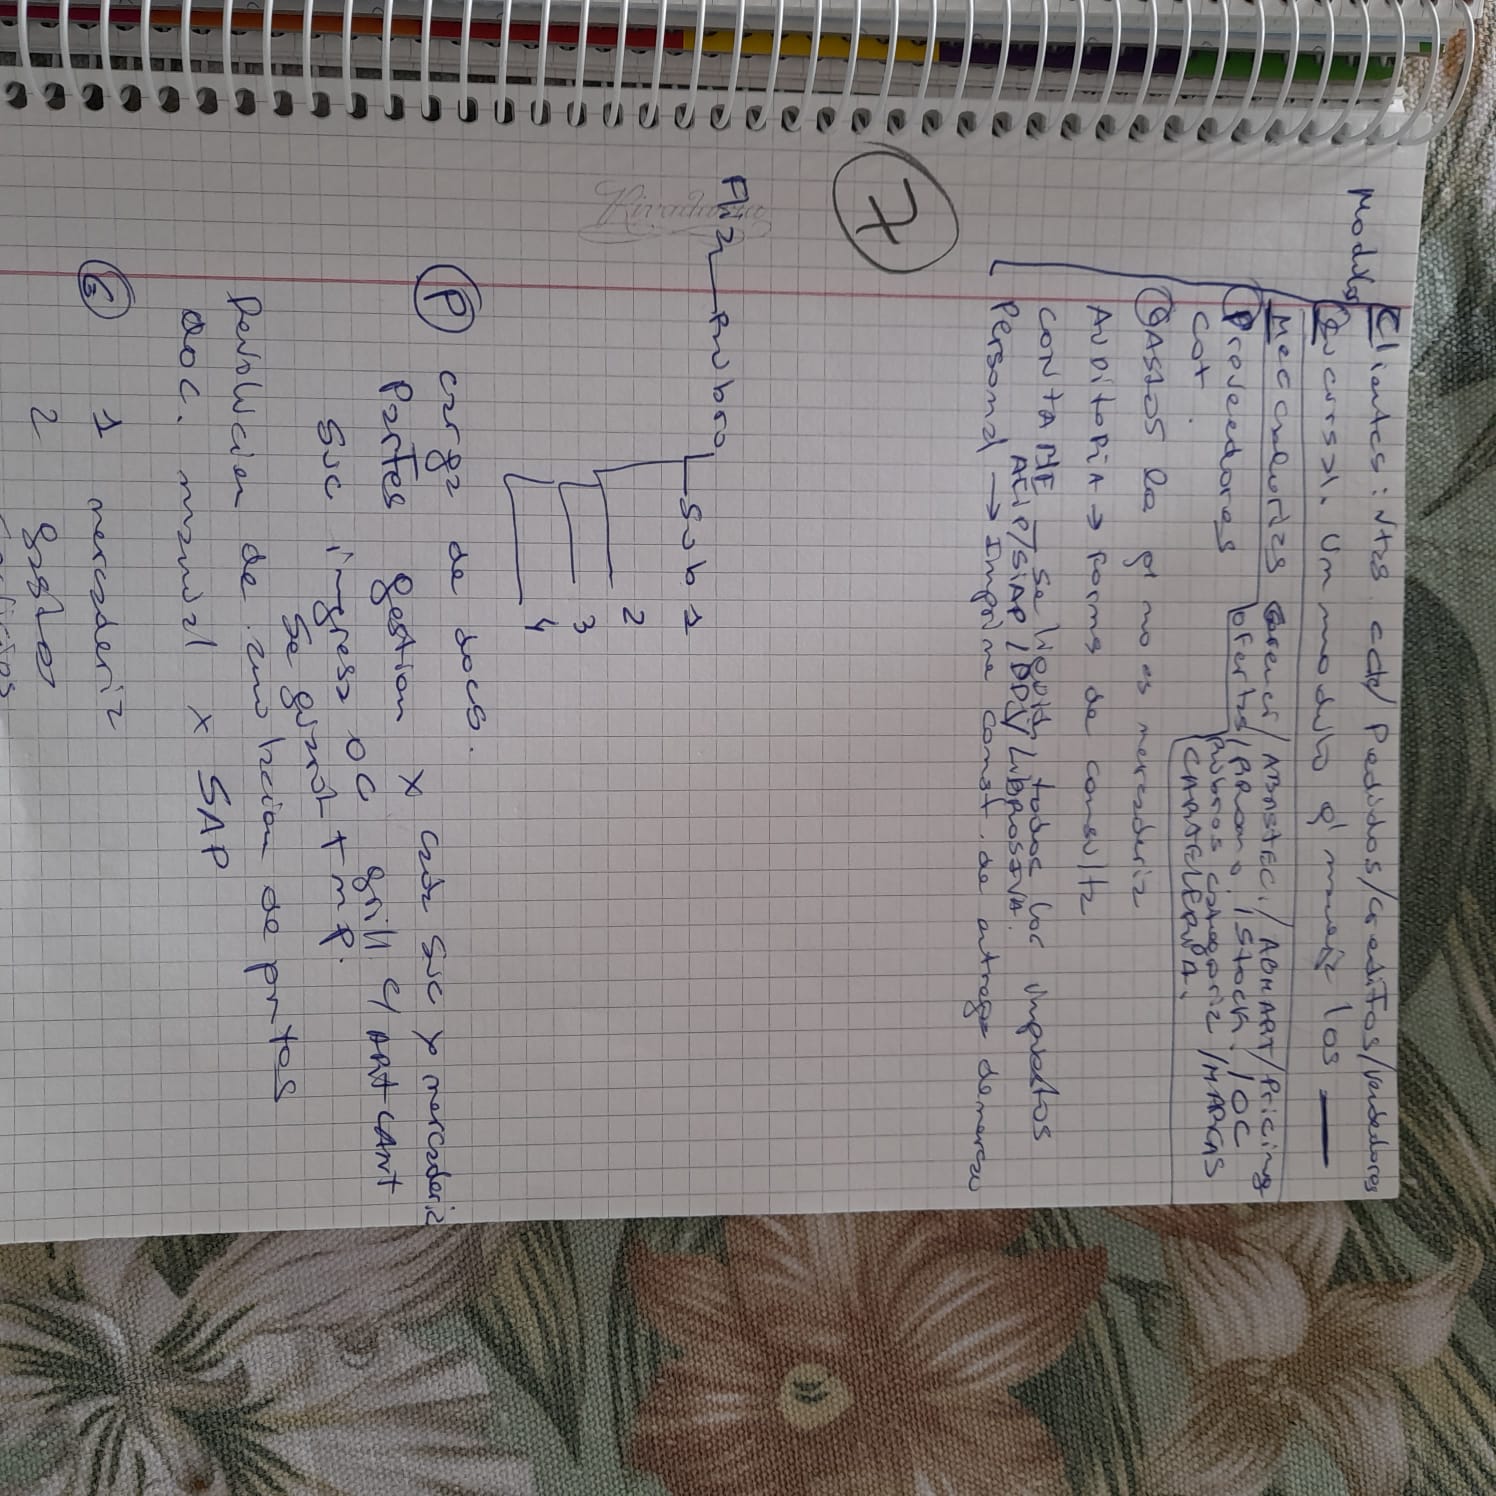 Modulos
Clientes: Ntas cdo/ Pedidos/creditos/vendedores
Sucursal. Un modulo q' maneja los
Mercaderias Gerenci/ ABASTEC./ ABMART/Pricing
Proveedores ofertas/promo./Stock./OC
Cot. Rubros categoriz/MARCAS
CARTELERIA.
GASTOS lo q' no es mercaderia
AUDITORIA → Forma de consulta
CONTABLE - se liquidan todos los impuestos
AFIP/SIAP/DDJJ/LIBROS IVA.
Personal → Imprime const. de entrega
7
Rivadavia
Rubro
Sub 1
2
3
4
P carga de docs.
Partes gestion x cada suc x mercaderia
suc ingresa OC grilla c/ ART-CANT
Se guarda + m P.
Devolucion de anulacion de partes
doc. manual x SAP
G 1 mercaderia
2 gastos